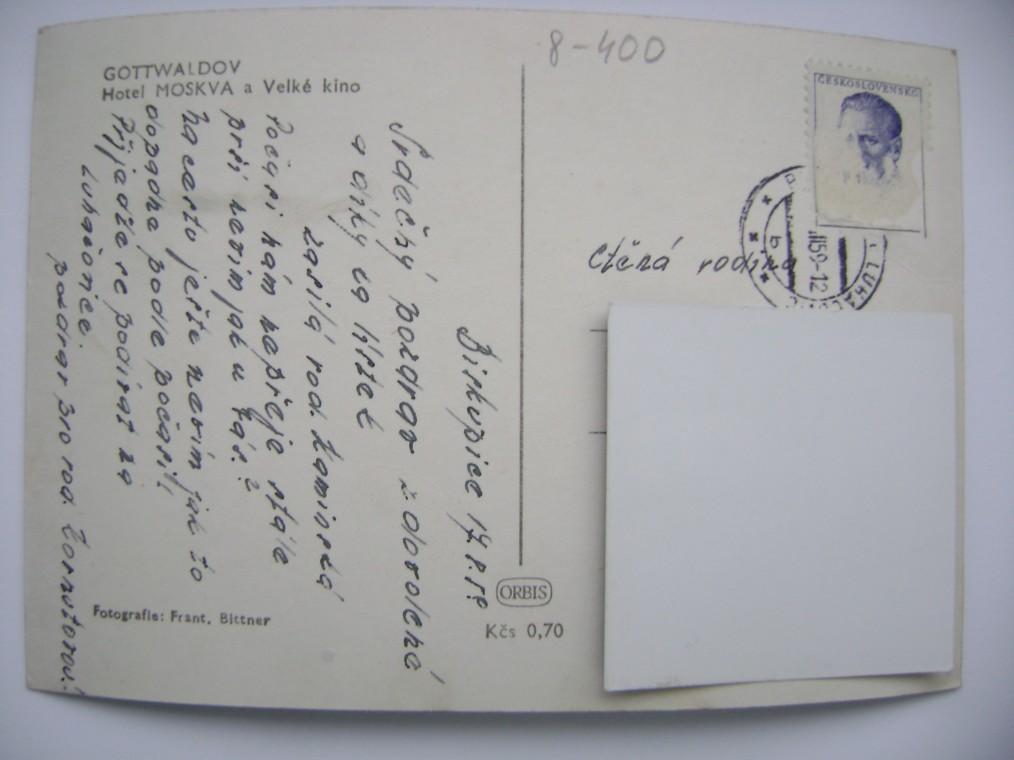 GOTTWALDOV
Hotel MOSKVA a Velké kino
8-400
ČESKOSLOVENSKO
59-12
LUHAČOVICE
Ctěná rodina
Biskupice 17.8.59
Srdečný pozdrav z dovolené
a díky za lístek
zasílá rod. Kaminská
Počasí nám nepřeje stále
prší nevím jak u Vás?
Na cestu ještě nevím jak to
dopadne podle počasí!
Přijeďte se podívat na
Luhačovice.
pozdrav pro rod.
ORBIS
Kčs 0,70
Fotografie: Frant. Bittner